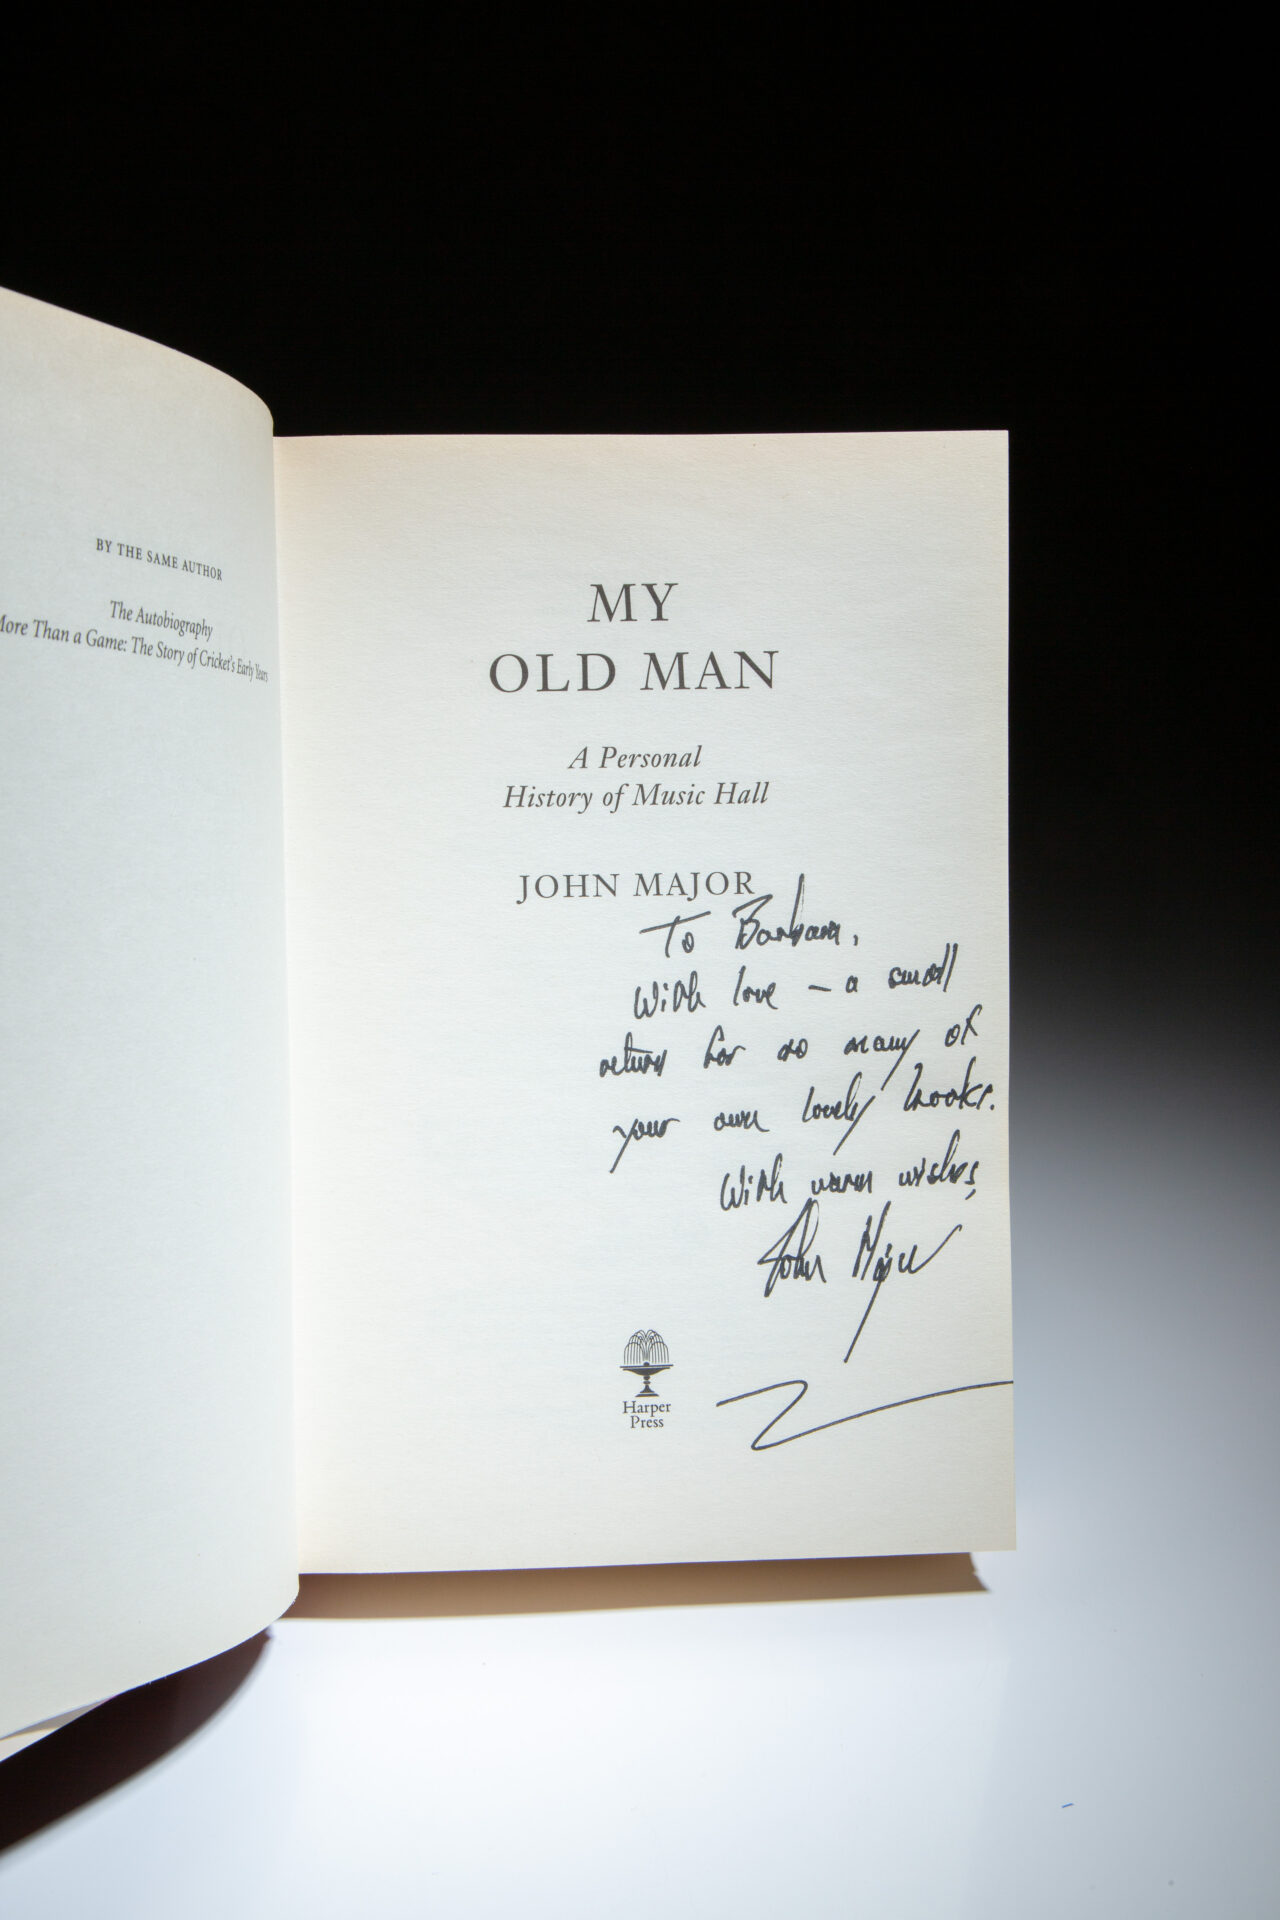 BY THE SAME AUTHOR
The Autobiography
More Than a Game: The Story of Cricket's Early Years
MY
OLD MAN
A Personal
History of Music Hall
JOHN MAJOR
To Barbara,
With love – a small
return for so many of
your own lovely books.
With warm wishes,
John Major
Harper
Press